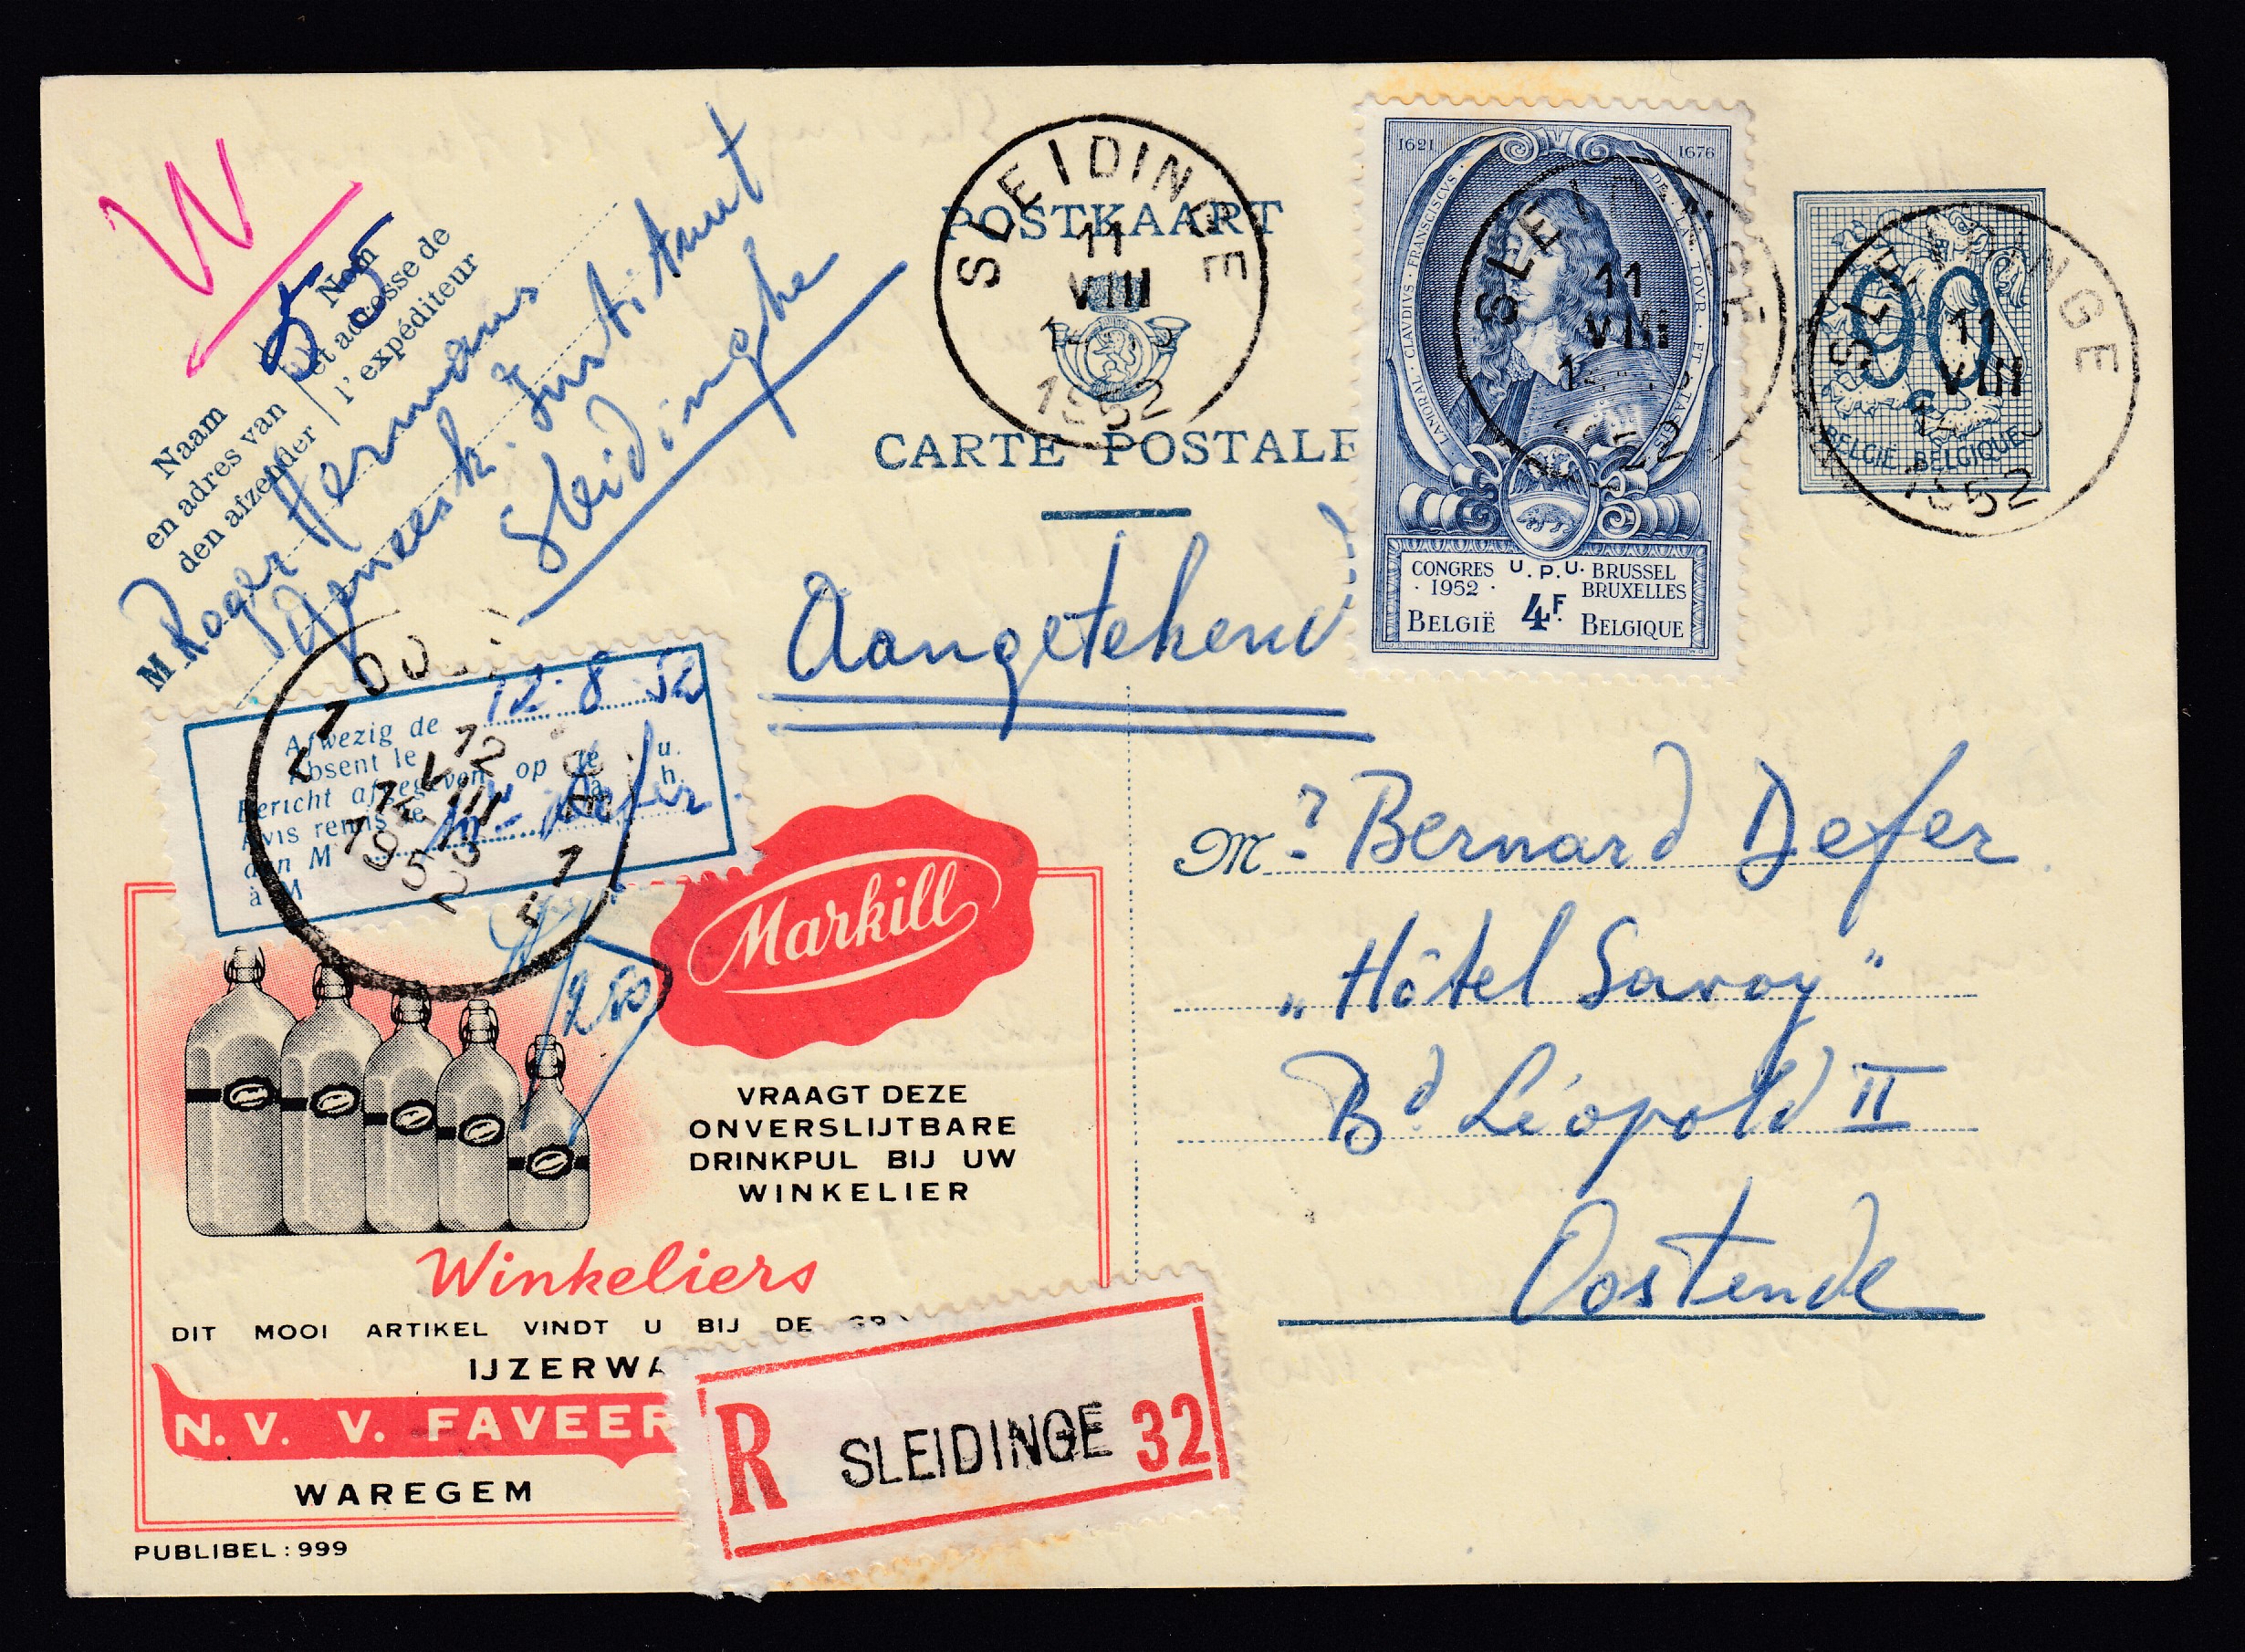 W
55
Naam
en adres van
den afzender
Nom
et adresse de
l'expéditeur
M Roger Hermans
Geneesk. Instituut
Sleidinghe
POSTKAART
CARTE POSTALE
SLEIDINGE
11
VIII
1952
1621
1676
LAMORAL · CLAVDIVS · FRANSCISCVS ·
DE · LA · TOVR · ET · TASSIS
CONGRES U.P.U. BRUSSEL
· 1952 · BRUXELLES
BELGIË 4F. BELGIQUE
SLEIDINGE
11
VIII
1952
90
BELGIË BELGIQUE
SLEIDINGE
11
VIII
1952
Aangetekend
Afwezig de 12-8-52
Absent le
Bericht afgegeven op te u.
Avis remis le à h.
den M Defer
à M
12
VIII
1952
Mr. Bernard Defer
"Hôtel Savoy"
Bd. Léopold II
Oostende
Markill
VRAAGT DEZE
ONVERSLIJTBARE
DRINKPUL BIJ UW
WINKELIER
Winkeliers
DIT MOOI ARTIKEL VINDT U BIJ DE GR
IJZERWA
N. V. V. FAVEER
WAREGEM
R SLEIDINGE 32
PUBLIBEL : 999